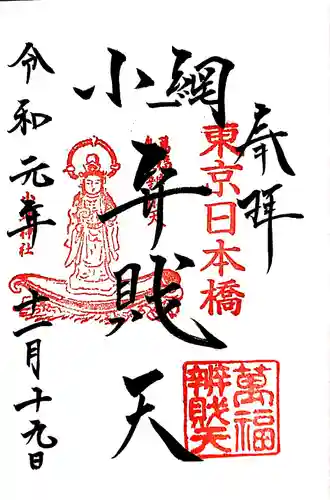 奉拝
東京日本橋
小網
弁財天
萬福
辨財天
令和元年十二月十九日